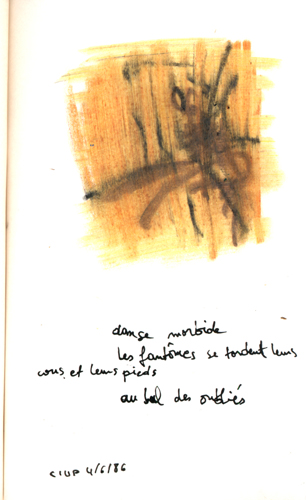 danse morbide
les fantômes se tordent leurs
cous et leurs pieds
au bal des oubliés
CIUP 4/6/86